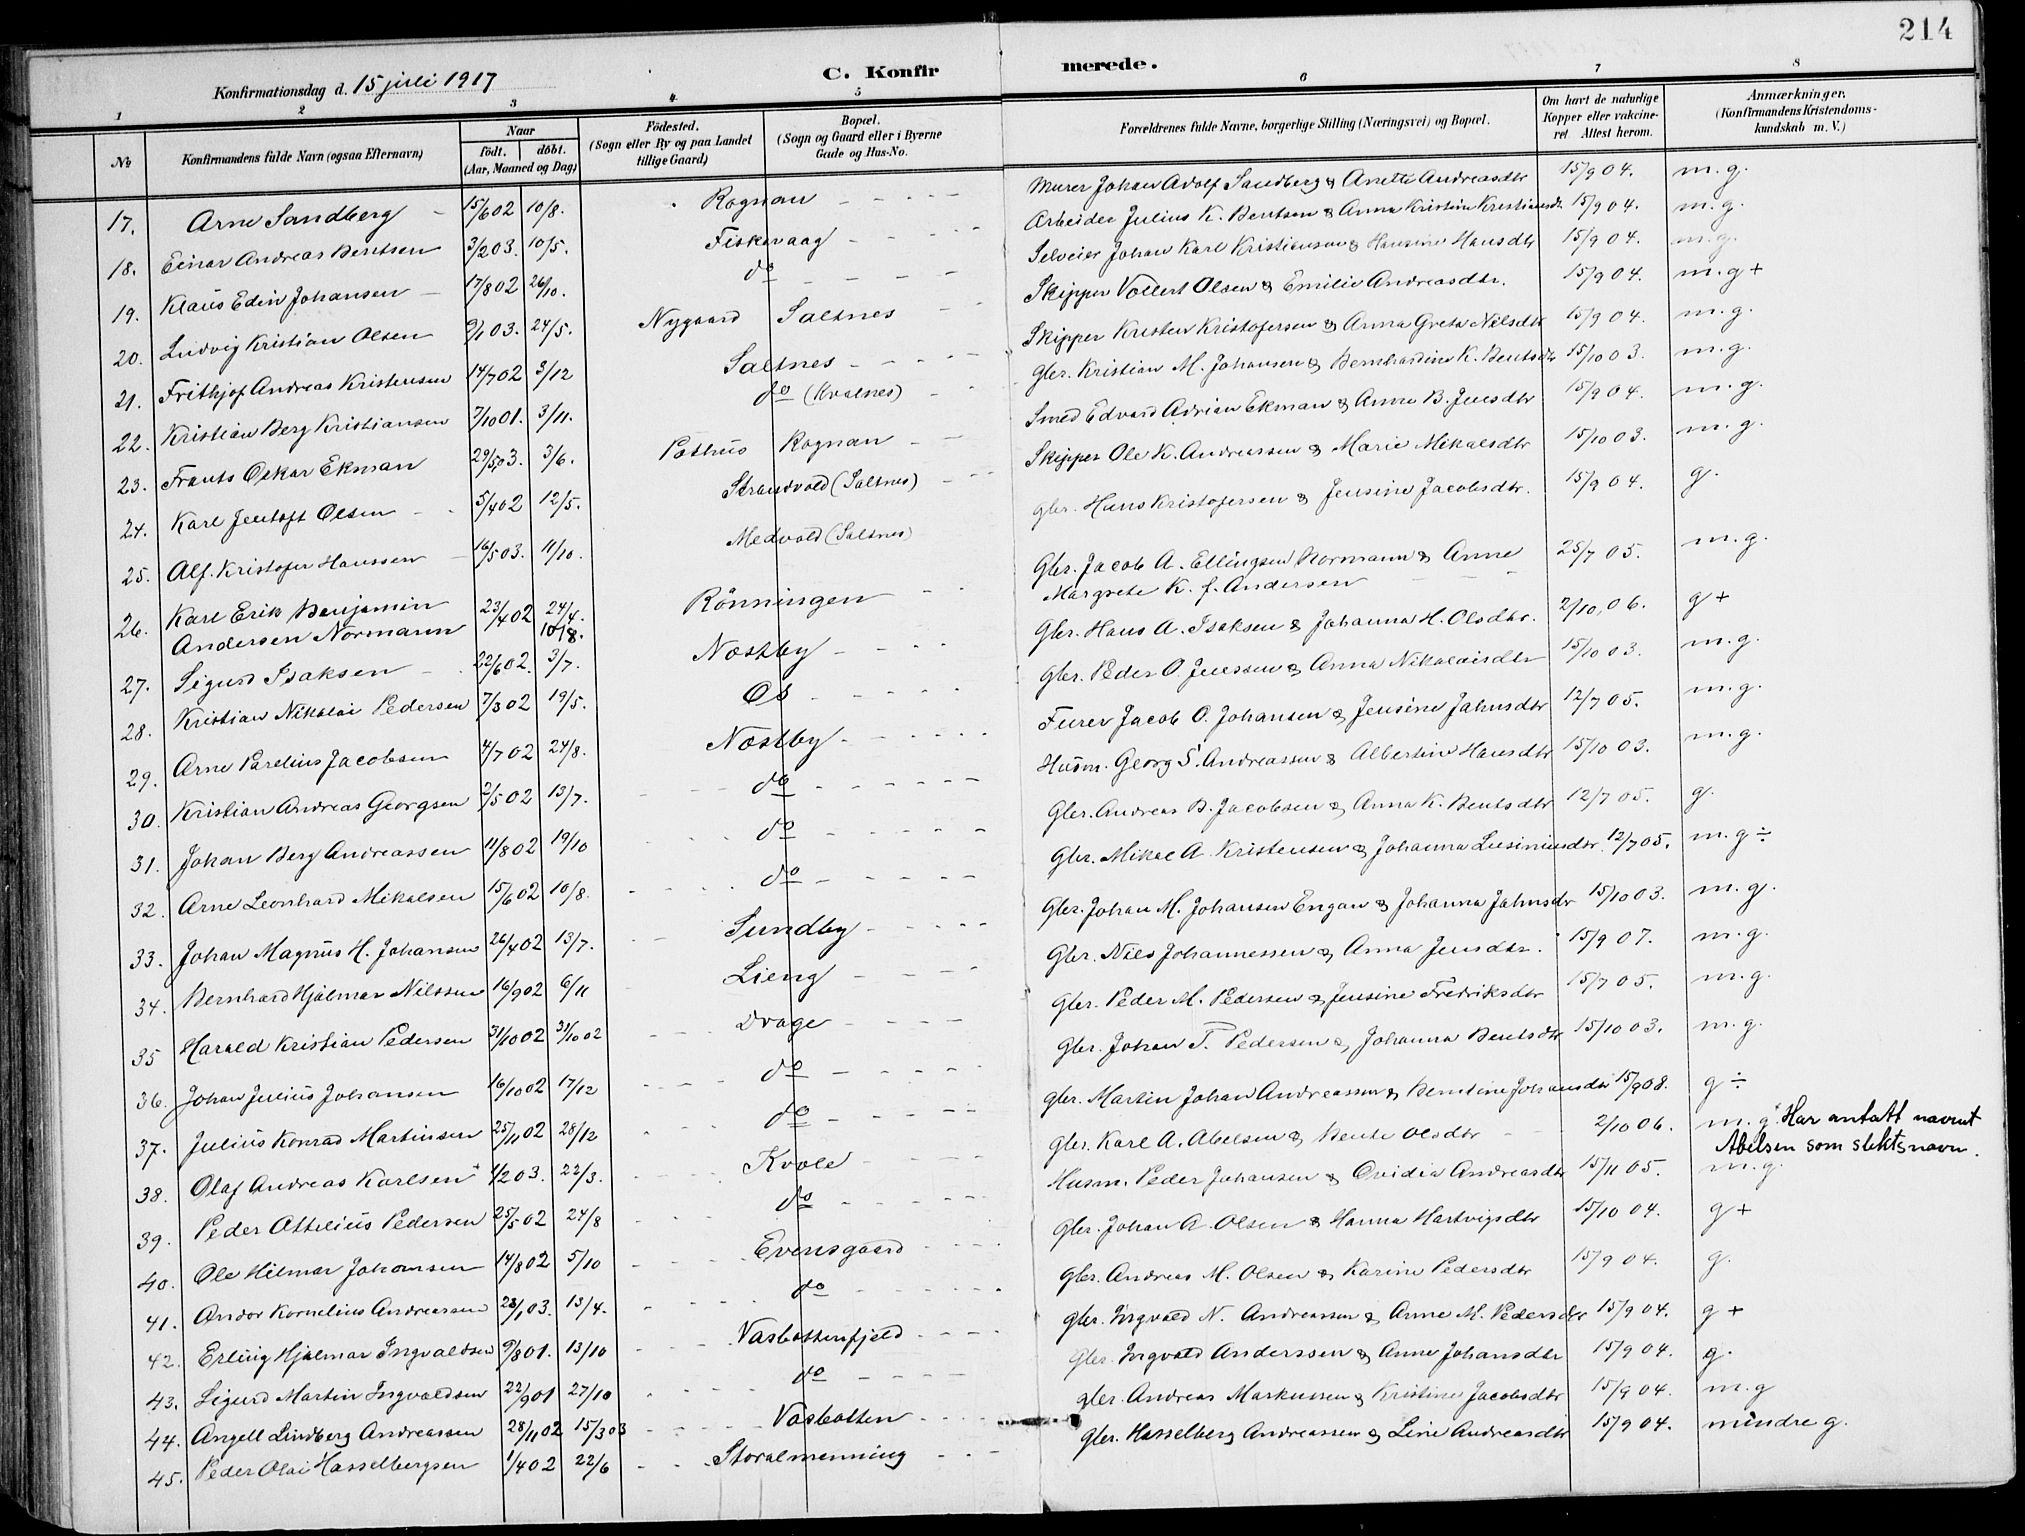 214
Konfirmationsdag d. 15 juli 1917
C. Konfirmerede.
1 2 3 4 5 6 7 8
No
Konfirmandens fulde Navn (ogsaa Efternavn)
Naar
födt. döbt.
(Aar, Maaned og Dag)
Födested.
(Sogn eller By og paa Landet
tillige Gaard)
Bopæl.
(Sogn og Gaard eller i Byerne
Gade og Hus-No.
Forældrenes fulde Navne, borgerlige Stilling (Næringsvei) og Bopæl.
Om havt de naturlige
Kopper eller vakcine-
ret Attest herom.
Anmærkninger.
(Konfirmandens Kristendoms-
kundskab m. V.)
17. Arne Sandberg 15/6 02 10/8. Rognan Murer Johan Adolf Sandberg & Anette Andreasdtr 15/9 04. m.g.
18. Einar Andreas Bentsen 3/2 03. 10/5. Fiskevaag Arbeider Julius K. Bentsen & Anna Kristine Kristiansdt. 15/9 04. m.g.
19. Klaus Edin Johansen 17/8 02 26/10. do Selveier Johan Karl Kristiansen & Hansine Hansdtr 15/9 04. m.g.
20. Ludvig Kristian Olsen 9/1 03. 24/5. Nygaard Saltnes Skipper Vollert Olsen & Emilie Andreasdtr. 15/9 04. m.g +
21. Frithjof Andreas Kristensen 14/7 02 3/12 Saltnes Skipper Kristen Kristofersen & Anna Greta Nilsdtr 15/9 04. m.g.
22. Kristian Berg Kristiansen 7/10 01. 3/11. do (Kvalnes) Gbr. Kristian M. Johansen & Bernhardine K. Bentsdtr 15/10 03. m.g.
23. Frants Oskar Ekman 29/5 03. 3/6. Pothus Rognan Smed Edvard Adrian Ekman & Anne B. Jensdtr 15/9 04. m.g.
24. Karl Jentoft Olsen 5/4 02 12/5. Strandvold (Saltnes) Skipper Ole K. Andreassen & Marie Mikalsdtr 15/10 03. m.g.
25. Alf Kristofer Hanssen 16/5 03. 11/10. Medvold (Saltnes) gbr. Hans Kristofersen & Jensine Jacobsdtr. 15/9 04. g.
26. Karl Erik Benjamin 23/4 02 24/4. Rönningen Gbr. Jacob A. Ellingsen Normann & Anne 25/7 05. m.g.
Andersen Normann 10/8. Margrete K. f. Andersen
27. Sigurd Isaksen 22/6 02. 3/7. Næstby Gbr. Hans A. Isaksen & Johanna H. Olsdtr. 2/10, 06. g +
28. Kristian Nikolai Pedersen 7/3 02 19/5. Os Gbr. Peder O. Jenssen & Anna Nikolaisdtr 15/10 03. m.g.
29. Arne Parelius Jacobsen 4/7 02 24/8. Næstby Furer Jacob O. Johansen & Jensine Jahnsdtr 12/7 05. m.g.
30. Kristian Andreas Georgsen 2/5 02 13/7. do Husm. Georg S. Andreassen & Albertine Hansdtr 15/10 03. m.g.
31. Johan Berg Andreassen 11/8 02 19/10 do Gbr. Andreas B. Jacobsen & Anna K. Bentsdtr 12/7 05. g.
32. Arne Leonhard Mikalsen 15/6 02 10/8. do Gbr. Mikal A. Kristensen & Johanna Lusiniusdtr. 12/7 05. m.g ÷
33. Johan Magnus H. Johansen 26/4 02 13/7. Sundby Gbr. Johan M. Johansen Engan & Johanna Jahnsdtr 15/10 03. m.g.
34. Bernhard Hjalmar Nilssen 16/9 02 6/11 Lieng Gbr. Nils Johannessen & Anna Jensdtr. 15/9 07. m.g.
35 Harald Kristian Pedersen 31/10 02 31/10 02 Drage Gbr. Peder M. Pedersen & Jensine Fredriksdtr 15/7 05. m.g.
36. Johan Julius Johansen 16/10 02 17/12 do Gbr. Johan T. Pedersen & Johanna Bentsdtr 15/10 03. m.g.
37. Julius Konrad Martinsen 25/11 02 28/12 do gbr. Martin Johan Andreassen & Berntine Johansdtr 15/9 08. g ÷
38. Olaf Andreas Karlsen 4/2 03. 22/3. Kvale gbr. Karl A. Abelsen & Bente Olsdtr 2/10 06. m.g. Har antatt navnet
Abelsen som slektsnavn.
39. Peder Ottelius Pedersen 25/5 02 24/8 do Husm. Peder Johansen & Ovidia Andreasdtr 15/11 05. m.g.
40. Ole Hilmar Johansen 14/8 02 5/10 Evensgaard Gbr. Johan A. Olsen & Hanna Hartvigsdtr 15/10 04. g +
41. Andor Kornelius Andreassen 28/1 03. 13/4. do Gbr. Andreas M. Olsen & Karine Pedersdtr 15/9 04. g.
42. Erling Hjalmar Ingvaldsen 9/8 01. 13/10 Vasbottenfjeld gbr. Ingvald N. Andreassen & Anne M. Pedersdtr 15/9 04. g +
43. Sigurd Martin Ingvaldsen 22/9 01 27/10 do Gbr. Ingvald Anderssen & Anne Johansdtr 15/9 04. g.
44. Angell Lindberg Andreassen 28/11 02 15/3 03 Vasbotten gbr. Andreas Markussen & Kristine Jacobsdtr 15/9 04. m.g
45. Peder Olai Hasselbergsen 1/4 02 22/6 Storalmenning Gbr. Hasselberg Andreassen & Line Andreasdtr 15/9 04. mindre g.